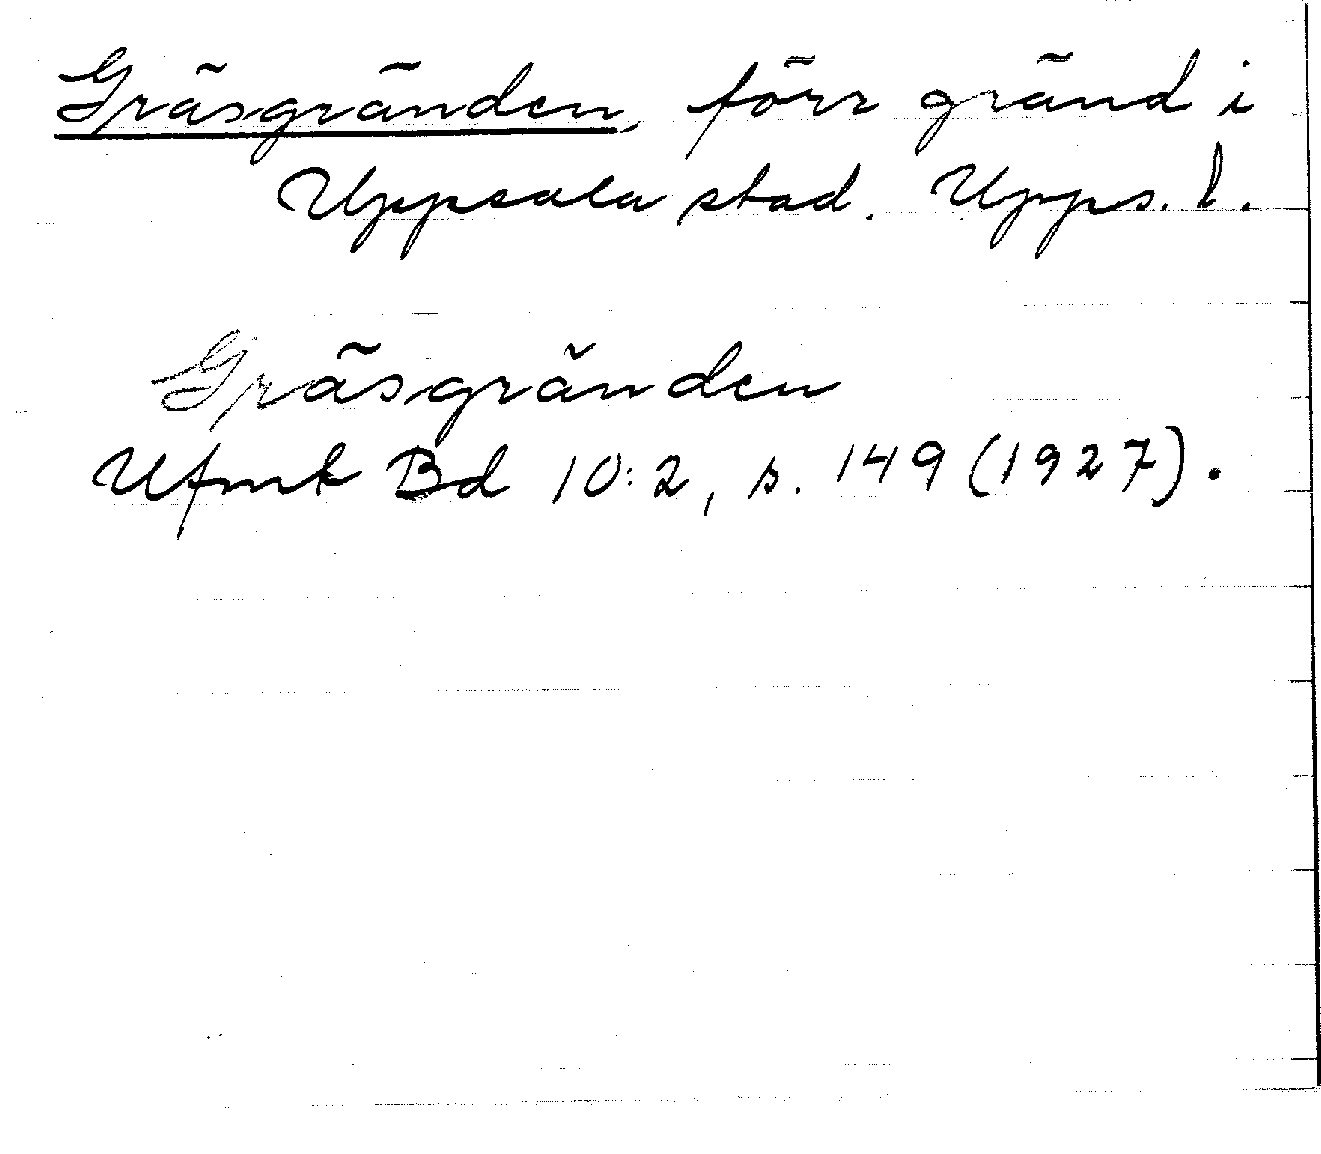 Gräsgränden, förr gränd i
Uppsala stad. Upps. l.
Gräsgränden
Ufmt Bd 10:2, s. 149 (1927).